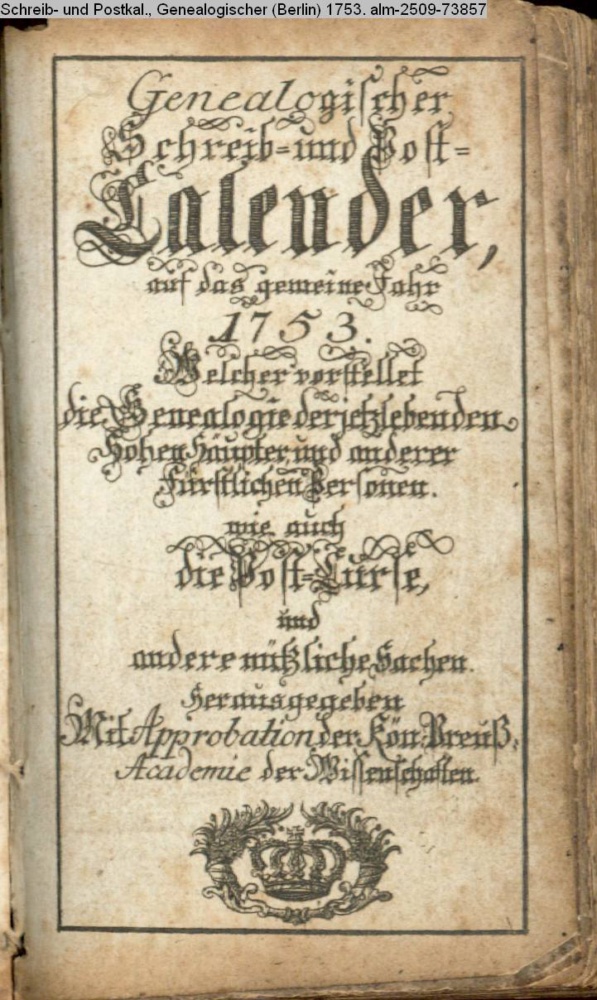 Schreib- und Postkal., Genealogischer (Berlin) 1753. alm-2509-73857
Genealogischer
Schreib= und Post=
Calender,
auf das gemeine Jahr
1753.
Welcher vorstellet
die Genealogie der jetzlebenden
Hohen Häupter, und anderer
Fürstlichen Personen.
wie auch
die Post=Curse,
und
andere nützliche Sachen.
Herausgegeben
Mit Approbation der Kön: Preuß:
Academie der Wissenschaften.